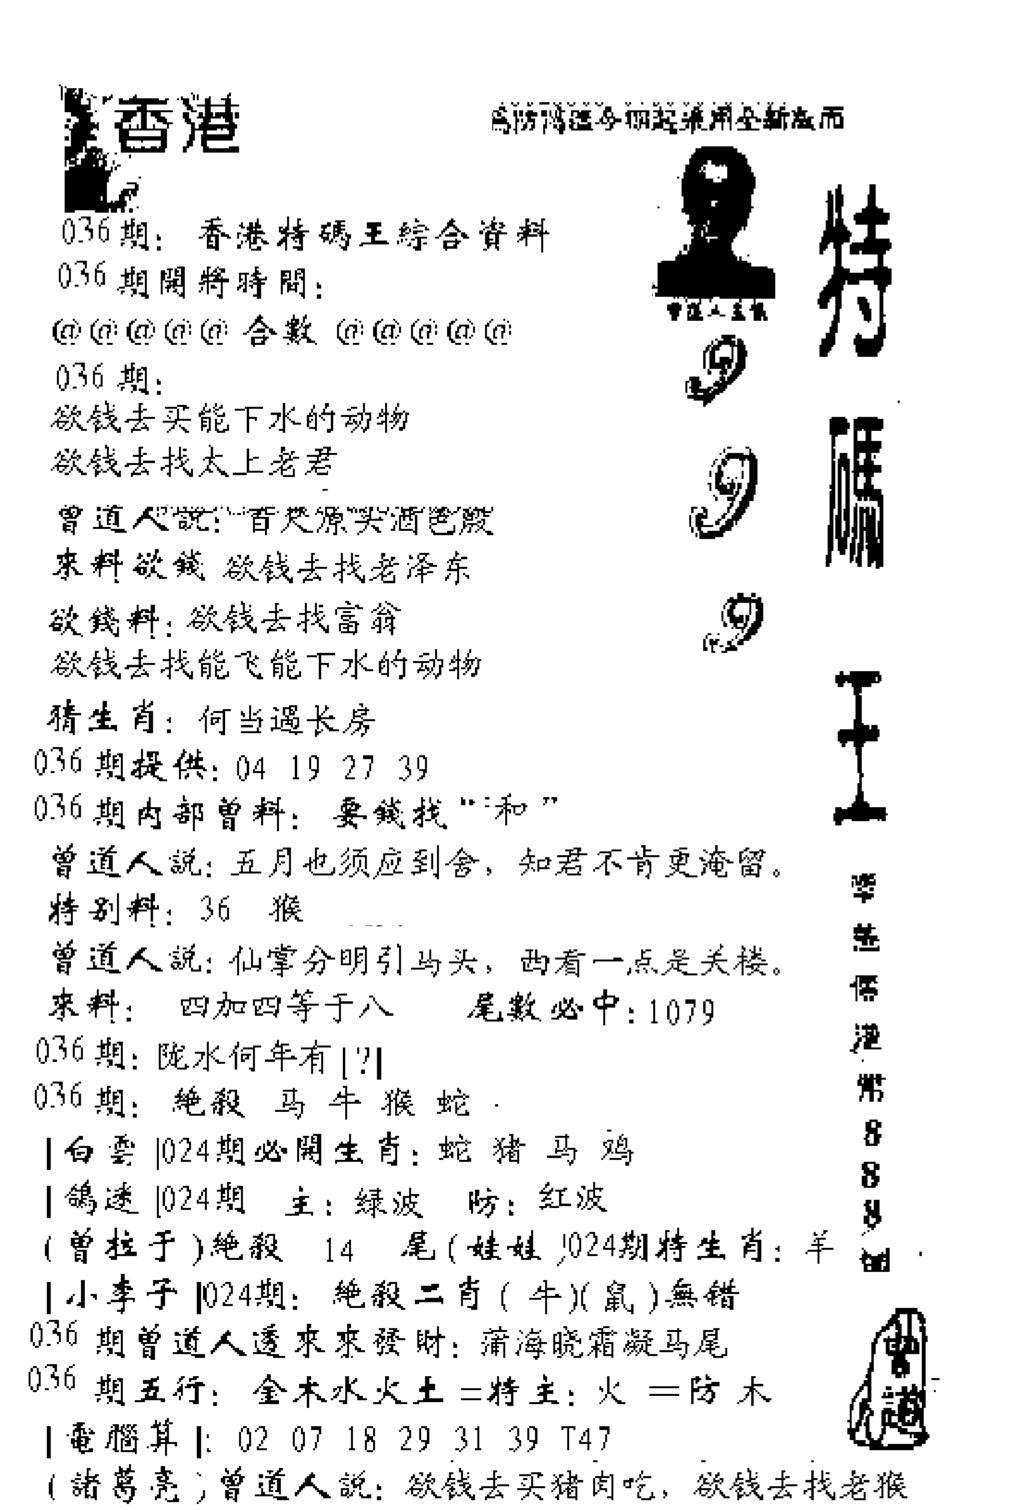 香港
036期：香港特碼王綜合資料
036期開將時間：
@@@@@ 合數 @@@@@
036期：
欲钱去买能下水的动物
欲钱去找太上老君
曾道人說：
來料欲錢 欲钱去找老泽东
欲錢料：欲钱去找富翁
欲钱去找能飞能下水的动物
猜生肖：何当遇长房
036期提供：04 19 27 39
036期内部曾料：要錢找“ 和 ”
曾道人説：五月也须应到舍，知君不肯更淹留。
特别料：36 猴
曾道人説：仙掌分明引马头，西看一点是关楼。
來料： 四加四等于八 尾數必中：1079
036期：陇水何年有|?|
036期： 絶殺 马 牛 猴 蛇
|白雲|024期必開生肖：蛇 猪 马 鸡
|鴿迷|024期 主：绿波 防：红波
(曾拉于)絶殺 14 尾(娃娃)024期特生肖：羊
|小李子|024期： 絶殺二肖(牛)(鼠)無错
036期曾道人透來來發財：蒲海晓霜凝马尾
036期五行： 金木水火土=特主：火 =防 木
|電腦算|：02 07 18 29 31 39 T47
(諸葛亮)曾道人説：欲钱去买猪肉吃，欲钱去找老猴
曾道人
9
9
9
特
碼
王
港
幣
8
8
8
曾道